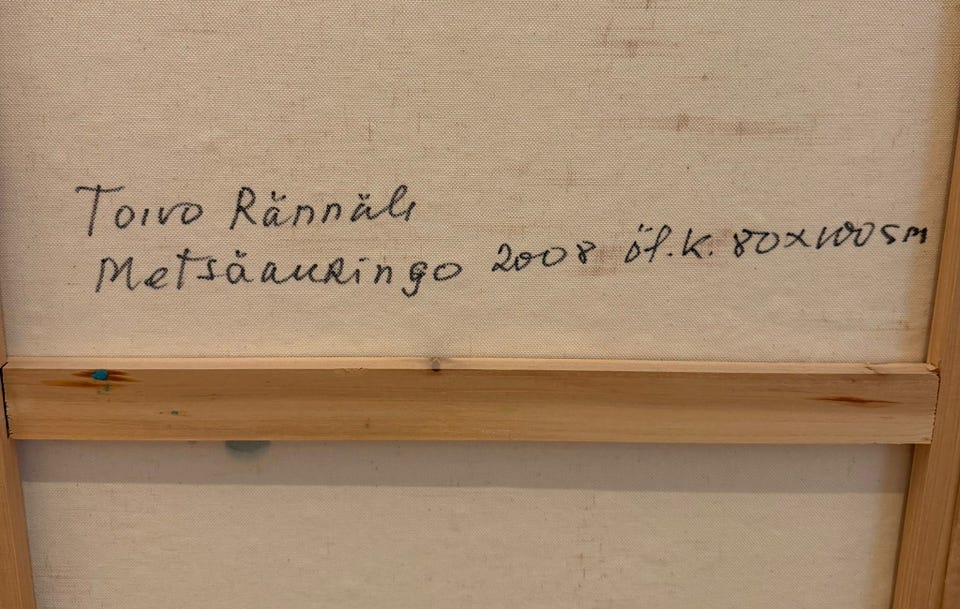 Toivo Rännäli
Metsäauringo 2008 öl.k. 80x100 sm